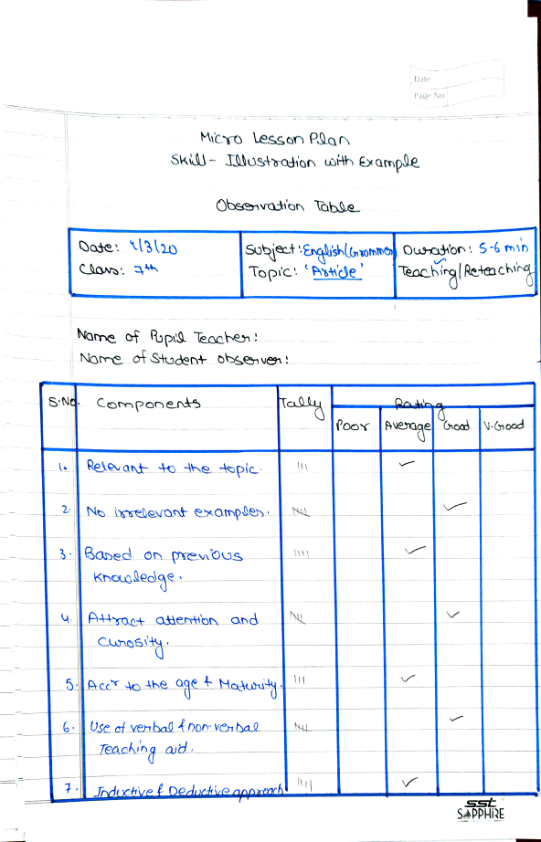 Date
Page No
Micro Lesson Plan
Skill- Illustration with Example
Observation Table
Date: 2/3/20
Class: 7th
Subject: English(Grammar)
Topic: 'Article'
Duration: 5-6 min
Teaching/Reteaching
Name of Pupil Teacher:
Name of Student observer:
S.No. Components Tally Rating
Poor Average Good V.Good
1. Relevant to the topic.
2. No irrelevant examples.
3. Based on previous
knowledge.
4. Attract attention and
Curosity.
5. Accr to the age & Maturity.
6. Use of verbal & non-verbal
Teaching aid.
7. Inductive & Deductive approach
sst
SAPPHIRE